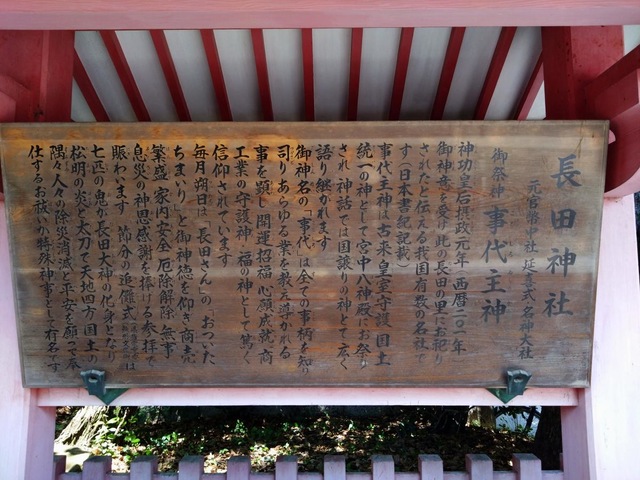 長田神社
元官幣中社 延喜式名神大社
御祭神 事代主神
神功皇后摂政元年(西暦二〇一年)
御神意を受け此の長田の里にお祀り
されたと伝える我国有数の名社で
す(日本書紀記載)
事代主神は古来、皇室守護・国土
統一の神として宮中八神殿にお祭り
され、神話では国譲りの神として広く
語り継がれます
御神名の「事代」は全ての事柄を知り
司りあらゆる業を教え導かれる
事を顕し開運招福・心願成就、商
工業の守護神、福の神として篤く
信仰されています
毎月朔日は「長田さん」の「おついた
ちまいり」と御神徳を仰き商売
繁盛・家内安全・厄除解除・無事
息災の神恩感謝を捧ける参拝で
賑わいます 節分の追儺式は
七匹の鬼が長田大神の化身となり
松明の炎と太刀で天地四方・国土の
隅々人々の除災消滅と平安を願って奉
仕するお祓い・特殊神事として有名です